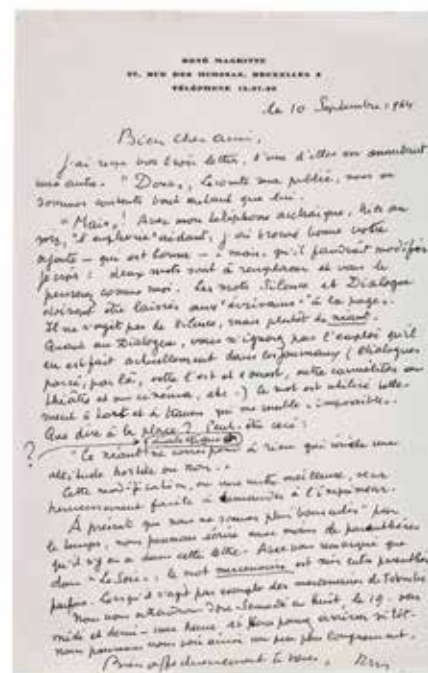 RENÉ MAGRITTE
97, RUE DES MIMOSAS, BRUXELLES 3
TÉLÉPHONE 15.07.30
le 10 Septembre 1964
Bien cher ami,
J'ai reçu vos trois lettres, l'une d'elles en annonçant
une autre. "Donc", Lecomte sera publié, nous en
sommes contents tout autant que lui.
"Mais"! Avec mon téléphone archaïque,
j'ai trouvé bonne votre
ajoute – qui est bonne – mais qu'il faudrait modifier
je crois : deux mots sont à remplacer et vous le
penserez comme moi. Les mots Silence et Dialogue
doivent être laissés aux "écrivains" à la page.
Il ne s'agit pas de Silence, mais plutôt de néant.
Quant au Dialogue, vous n'ignorez pas l'emploi qu'il
en est fait actuellement dans les journaux (Dialogues
par ci, par là, entre l'est et l'ouest, entre
théâtre et au cinéma, etc.) le mot est utilisé telle-
ment à tort et à travers qu'il me semble impossible.
Que dire à la place ? Peut-être ceci :
?
"Le néant ne correspond à rien qui révèle une
attitude hostile ou non"
Cette modification, ou une autre meilleure, sera
heureusement facile à demander à l'imprimeur.
À présent que nous ne sommes plus bousculés par
le temps, nous pouvons écrire avec moins de parenthèses
qu'il y en a dans cette lettre. Avez-vous remarqué que
dans "Le Soir", le mot mercenaires est mis entre parenthèses
parfois. Lorsqu'il s'agit par exemple des mercenaires de Tshombe
Nous vous attendons donc Samedi en huit le 19, vers
midi et demi – une heure
nous pourrons nous voir ainsi un peu plus longuement.
Bien affectueusement à vous,